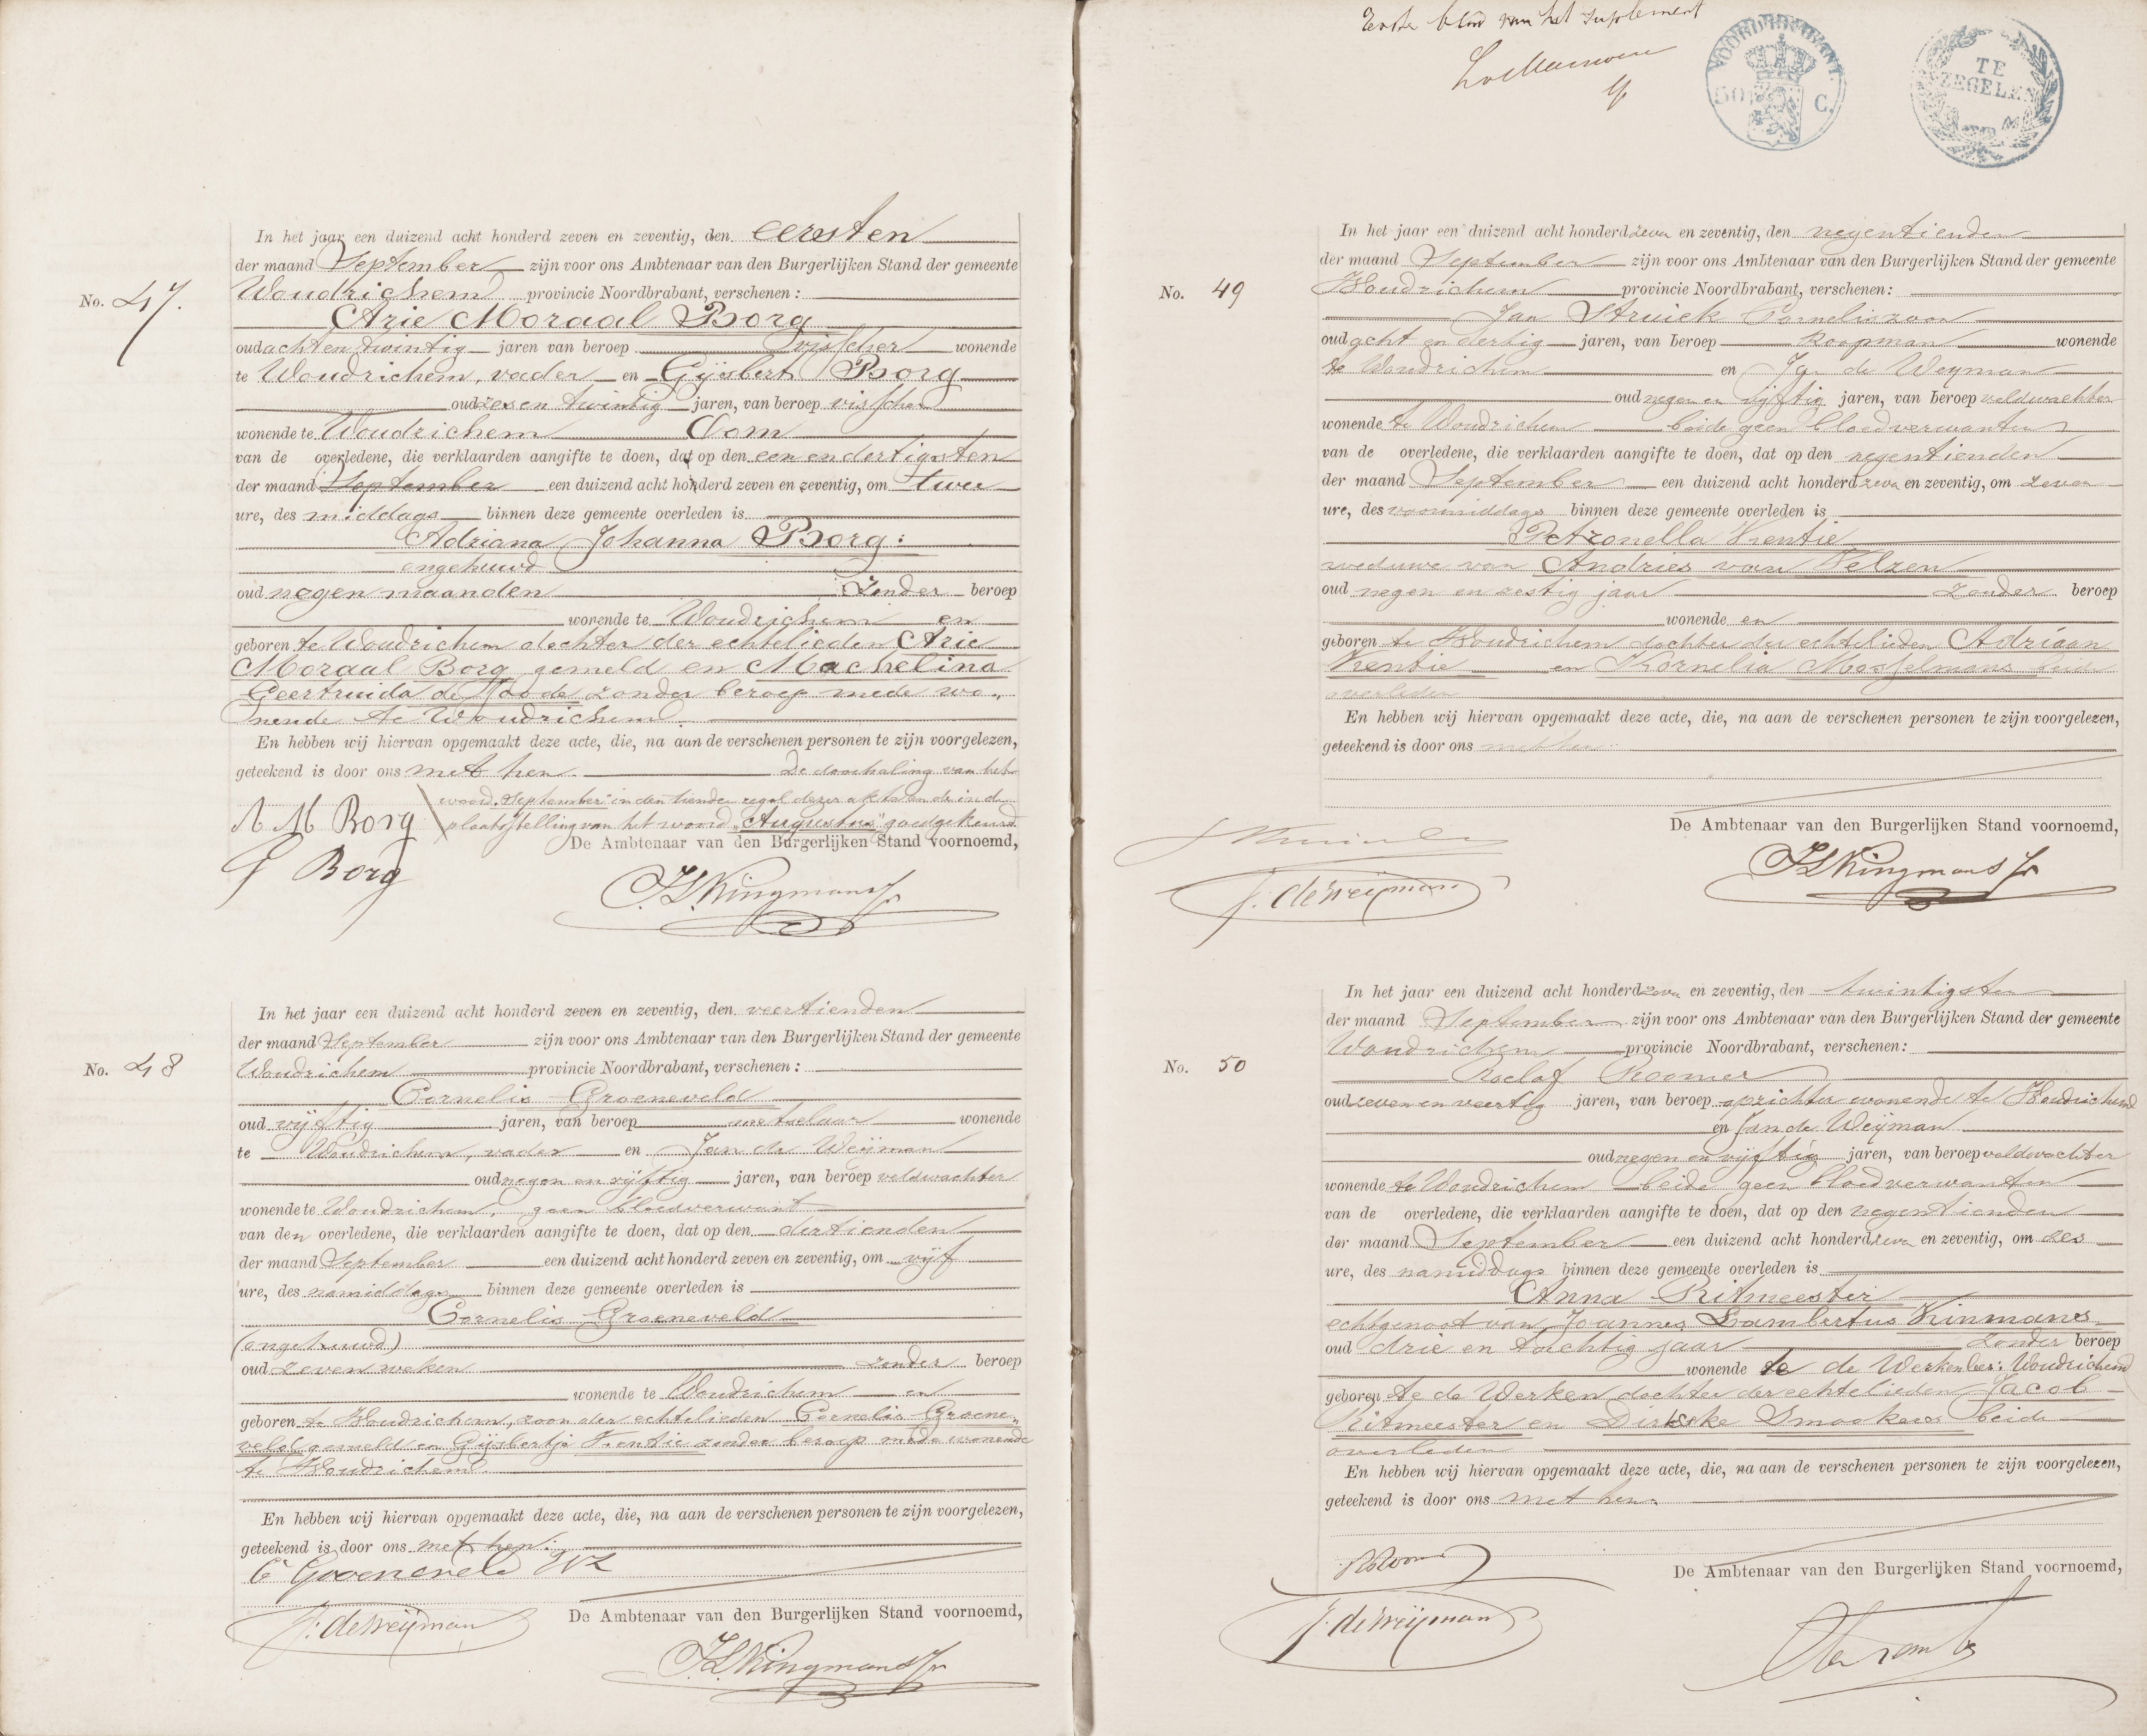 No. 47.
In het jaar een duizend acht honderd zeven en zeventig, den eersten
der maand September zijn voor ons Ambtenaar van den Burgerlijken Stand der gemeente
Woudrichem provincie Noordbrabant, verschenen:
Arie Moraal Borg
oud acht en twintig jaren van beroep visscher wonende
te Woudrichem, vader en Gijsbert Borg
oud zes en twintig jaren, van beroep visscher
wonende te Woudrichem Oom
van de overledene, die verklaarden aangifte te doen, dat op den een en dertigsten
der maand September een duizend acht honderd zeven en zeventig, om twee
ure, des middags binnen deze gemeente overleden is
Adriana Johanna Borg:
ongehuwd
oud negen maanden zonder beroep
wonende te Woudrichem en
geboren te Woudrichem dochter der echtelieden Arie
Moraal Borg gemeld en Machelina
Geertruida de zonder beroep mede wo„
nende te Woudrichem.
En hebben wij hiervan opgemaakt deze acte, die, na aan de verschenen personen te zijn voorgelezen,
geteekend is door ons met hen. De doorhaling van het
woord „September" in den tiende regel dezer akte en de in de
plaatsstelling van het woord „Augustus" goedgekeurd
A M Borg
G Borg
De Ambtenaar van den Burgerlijken Stand voornoemd,
JLKingmans Jr
No. 48
In het jaar een duizend acht honderd zeven en zeventig, den veertienden
der maand September zijn voor ons Ambtenaar van den Burgerlijken Stand der gemeente
Woudrichem provincie Noordbrabant, verschenen:
Cornelis Groeneveld
oud vijftig jaren, van beroep metselaar wonende
te Woudrichem, vader en Jan de Weijman
oud negen en vijftig jaren, van beroep veldwachter
wonende te Woudrichem, geen bloedverwant
van den overledene, die verklaarden aangifte te doen, dat op den dertienden
der maand September een duizend acht honderd zeven en zeventig, om vijf
ure, des namiddags binnen deze gemeente overleden is
Cornelis Groeneveld
(ongehuwd)
oud zeven weken zonder beroep
wonende te Woudrichem en
geboren te Woudrichem, zoon der echtelieden Cornelis Groene„
veld gemeld en Gijsbertje Kentie zonder beroep mede wonende
te Woudrichem.
En hebben wij hiervan opgemaakt deze acte, die, na aan de verschenen personen te zijn voorgelezen,
geteekend is door ons met hen.
C Groeneveld
J. de Weijman
De Ambtenaar van den Burgerlijken Stand voornoemd,
JLKingmans Jr
Eerste blad van het suplement
NOORDBRABANT.
50 C.
TE
ZEGELEN
No. 49
In het jaar een duizend acht honderd zeven en zeventig, den negentienden
der maand September zijn voor ons Ambtenaar van den Burgerlijken Stand der gemeente
Woudrichem provincie Noordbrabant, verschenen:
Jan Struick Corneliszoon
oud acht en dertig jaren, van beroep koopman wonende
te Woudrichem en Jan de Weyman
oud negen en vijftig jaren, van beroep veldwachter
wonende te Woudrichem beide geen bloedverwanten
van de overledene, die verklaarden aangifte te doen, dat op den negentienden
der maand September een duizend acht honderd zeven en zeventig, om zeven
ure, des voormiddags binnen deze gemeente overleden is
Petronella Kentie
weduwe van Andries van Velzen
oud negen en zestig jaar zonder beroep
wonende en
geboren te Woudrichem dochter der echtelieden Adriaan
Kentie en Kornelia Mosselmans beide
overleden
En hebben wij hiervan opgemaakt deze acte, die, na aan de verschenen personen te zijn voorgelezen,
geteekend is door ons met hen.
De Ambtenaar van den Burgerlijken Stand voornoemd,
J. de Weijman
JLKingmans Jr
No. 50
In het jaar een duizend acht honderd zeven en zeventig, den twintigsten
der maand September zijn voor ons Ambtenaar van den Burgerlijken Stand der gemeente
Woudrichem provincie Noordbrabant, verschenen:
Roelof Roomer
oud zeven en veertig jaren, van beroep oprichter wonende te Woudrichem
en Jan de Weijman
oud negen en vijftig jaren, van beroep veldwachter
wonende te Woudrichem beide geen bloedverwanten
van de overledene, die verklaarden aangifte te doen, dat op den negentienden
der maand September een duizend acht honderd zeven en zeventig, om zes
ure, des namiddags binnen deze gemeente overleden is
Anna Ritmeester
echtgenoot van Joannes Lambertus Kinmans
oud drie en tachtig jaar zonder beroep
wonende te de Werken bez: Woudrichem
geboren te de Werken dochter der echtelieden Jacob
Ritmeester en Dirkske Smookers beide
overleden
En hebben wij hiervan opgemaakt deze acte, die, na aan de verschenen personen te zijn voorgelezen,
geteekend is door ons met hen.
R Roomer
De Ambtenaar van den Burgerlijken Stand voornoemd,
J. de Weijman